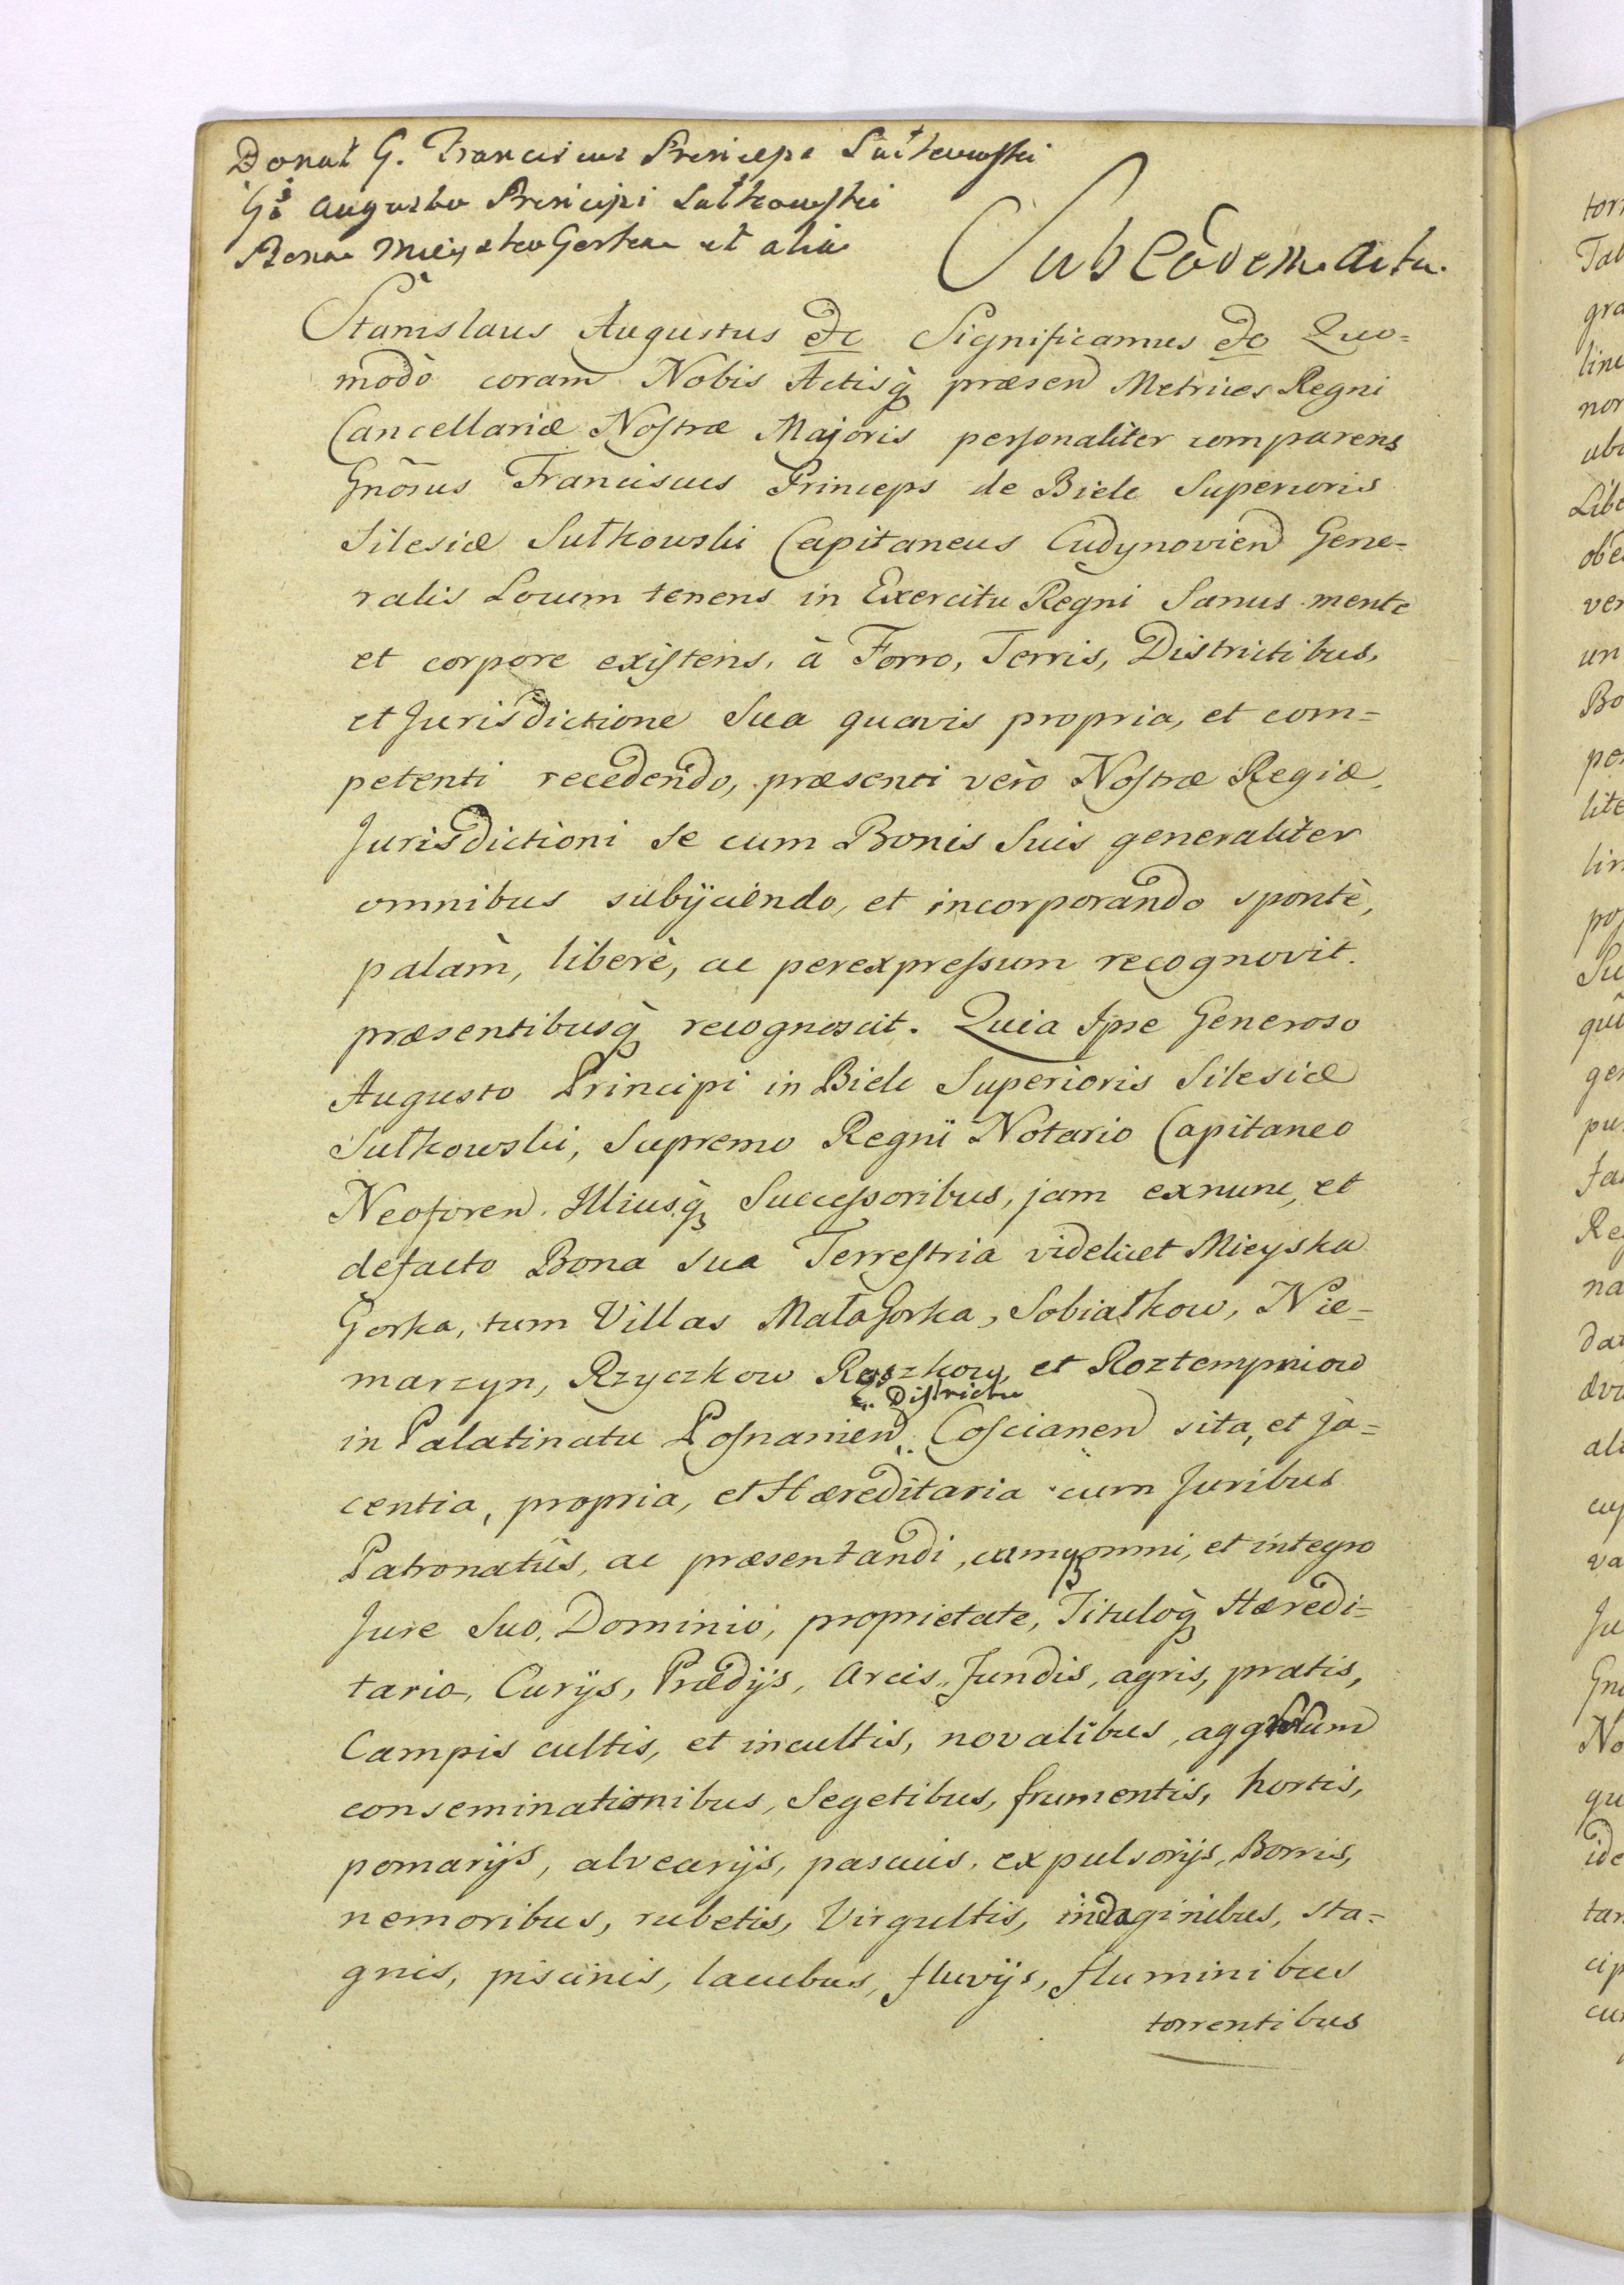 Donat G. Franciscus Princeps Sułkowski
Gő Augusto Principi Sułkowski
Bona Mieyska Gorka et alia
Sub Eodem Actu.
Stanislaus Augustus etc Significamus etc Quo=
modò coram Nobis Actisq̀ præsen Metrices Regni
Cancellariæ Noſtræ Majoris perſonaliter comparens
Gnõsus Franciscus Princeps de Biele Superioris
Silesiæ Sułkowski Capitaneus Cudynovien Gene=
ralis Locum tenens in Exercitu Regni Sanus mente
et corpore exiſtens, à Forro, Terris, Districtibus,
et Jurisdictione Sua quavis propria, et com=
petenti recedendo, præsenti verò Noſtræ Regiæ,
Jurisdictioni se cum Bonis Suis generaliter
omnibus subijciendo, et incorporando spontè,
palàm, liberè, ac perexpreſsum recognovit.
præsentibusq̀ recognoscit. Quia Ipse Generoso
Augusto Principi in Biele Superioris Silesiæ
Sułkowski, Supremo Regni Notario Capitaneo
Neoforen. Illiusq̀ Succeſsoribus, jam exnunc, et
defacto Bona sua Terreſtria videlicet Mieyska
Gorka, tum Villas MałaGorka, Sobiałkow, Nie=
marzyn, Rzyczkow Roszkow, et Roztempniow
in Palatinatu Poſnanien, Districtu Coſcianen sita, et ja=
centia, propria, et Hæreditaria cum Juribus
Patronatûs, ac præsentandi, cumq omni, et integro
Jure Suo, Dominio, proprietate, Tituloq̀ Hæredi=
tario, Curijs, Prædijs, Areis, Fundis, agris, pratis,
Campis cultis, et incultis, novalibus,
conseminationibus, Segetibus, frumentis, hortis,
pomarijs, alvearijs, pascuis, expulsorijs, Borris,
nemoribus, rubetis, Virgultis, indaginibus, sta=
gnis, piscinis, lacubus, fluvijs, fluminibus
torrentibus